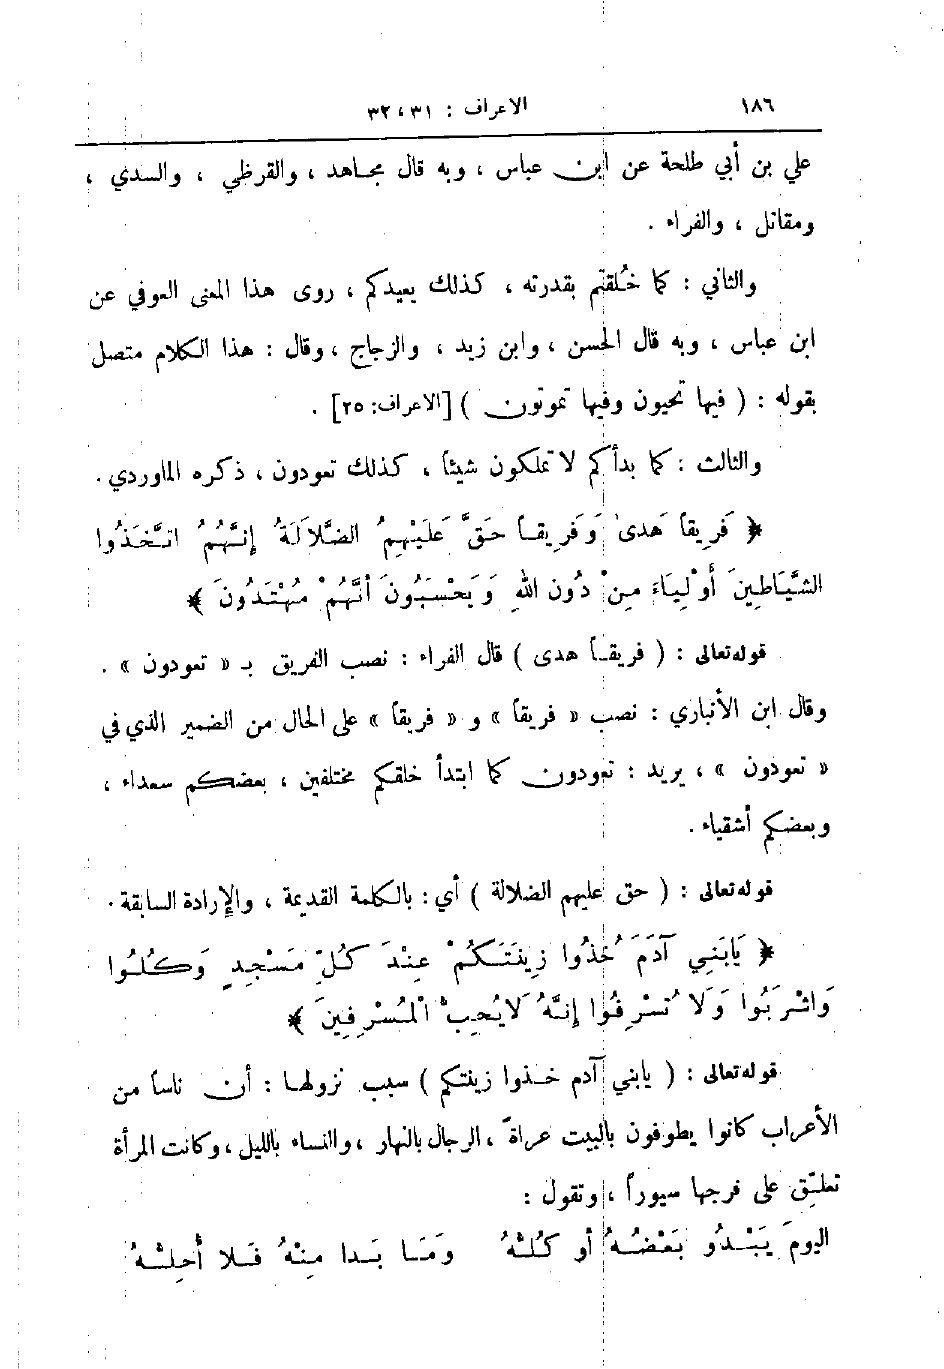 ١٨٦ الاعراف : ٣١ ، ٣٢
علي بن أبي طلحة عن ابن عباس ، وبه قال مجاهد ، والقرظي ، والسدي ،
ومقاتل ، والفراء .
والثاني : كما خُلقتم بقدرته ، كذلك يعيدكم ، روى هذا المعنى العوفي عن
ابن عباس ، وبه قال الحسن ، وابن زيد ، والزجاج ، وقال : هذا الكلام متصل
بقوله : ( فيها تحيون وفيها تموتون ) [الاعراف: ٢٥] .
والثالث : كما بدأكم لا تملكون شيئاً ، كذلك تعودون ، ذكره الماوردي .
﴿ فَرِيقاً هَدىٰ وَفَرِيقاً حَقَّ عَلَيْهِمُ الضَّلاَلَةُ إِنَّهُمُ اتَّخَذُوا
الشَّيَاطِينَ أَوْلِيَاءَ مِنْ دُونِ اللهِ وَيَحْسَبُونَ أَنَّهُمْ مُهْتَدُونَ ﴾
قوله تعالى : ( فريقاً هدى ) قال الفراء : نصب الفريق بـ « تعودون » .
وقال ابن الأنباري : نصب « فريقاً » و « فريقاً » على الحال من الضمير الذي في
« تعودون » ، يريد : تعودون كما ابتدأ خلقكم مختلفين ، بعضكم سعداء ،
وبعضكم أشقياء .
قوله تعالى : ( حق عليهم الضلالة ) أي : بالكلمة القديمة ، والإرادة السابقة .
﴿ يَابَنِي آدَمَ خُذُوا زِينَتَكُمْ عِنْدَ كُلِّ مَسْجِدٍ وَكُلُوا
وَاشْرَبُوا وَلَا تُسْرِفُوا إِنَّهُ لَايُحِبُّ الْمُسْرِفِينَ ﴾
قوله تعالى : ( يابني آدم خذوا زينتكم ) سبب نزولها : أن ناساً من
الأعراب كانوا يطوفون بالبيت عراة ، الرجال بالنهار ، والنساء بالليل ، وكانت المرأة
تعلِّق على فرجها سيوراً ، وتقول :
اليومَ يَبْدُو بَعْضُهُ أو كُلُّهُ وَمَا بَدا مِنْهُ فَلا أُحِلُّهُ